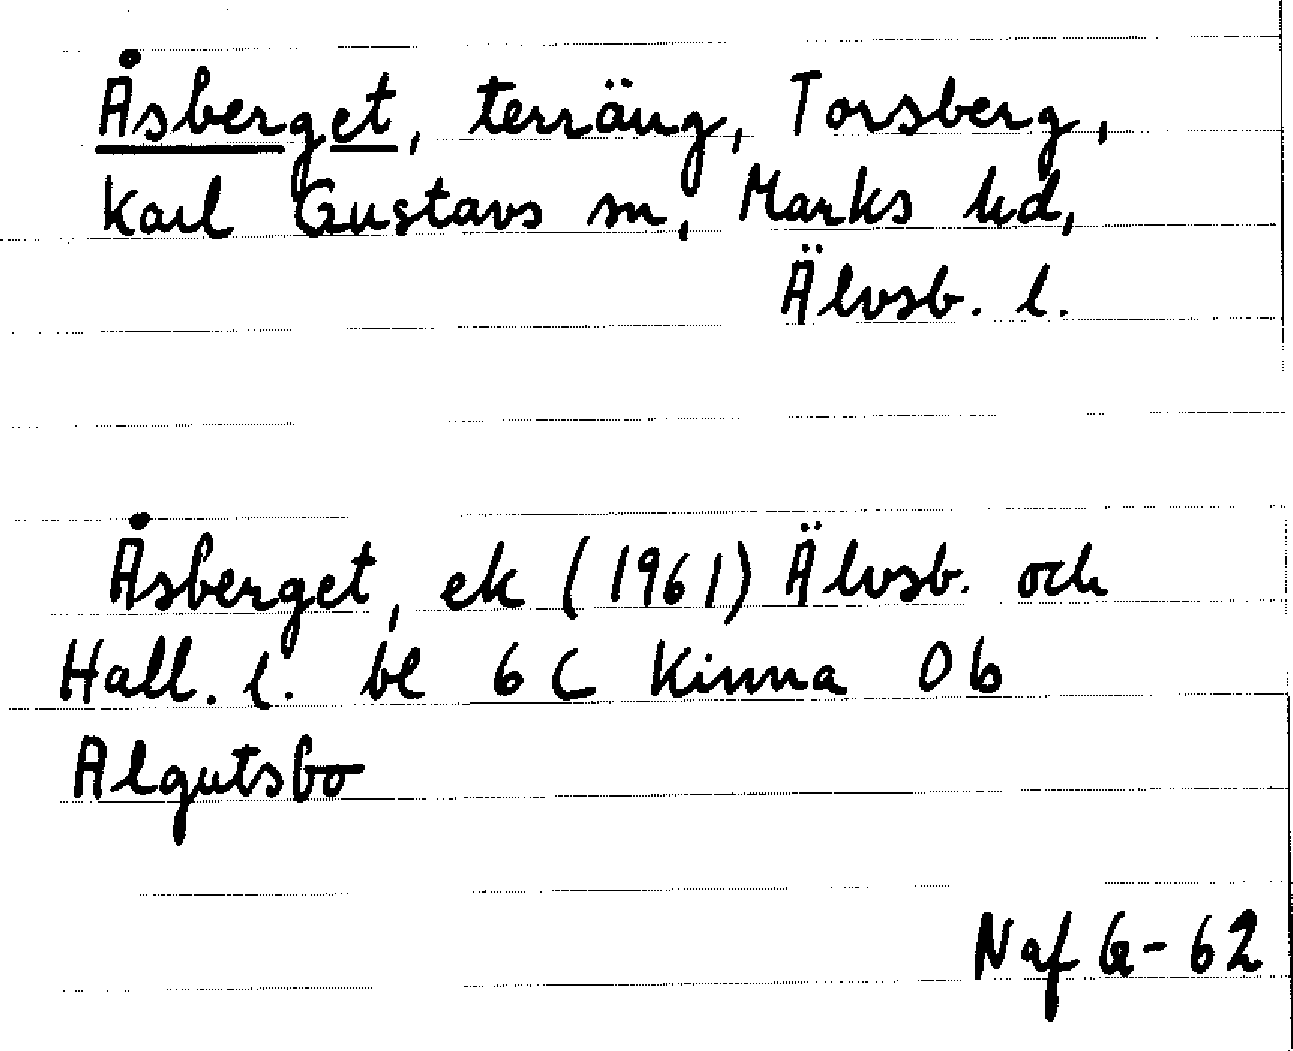 Åsberget, terräng, Torsberg,
Karl Gustavs sn, Marks hd,
Älvsb. l.
Åsberget, ek (1961) Älvsb. och
Hall. l. bl 6 C Kinna 0 b
Algutsbo
Naf G-62